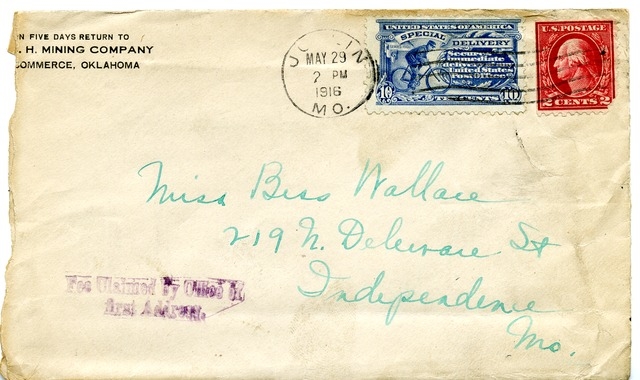 IN FIVE DAYS RETURN TO
. H. MINING COMPANY
COMMERCE, OKLAHOMA
JOPLIN
MAY 29
2 PM
1916
MO.
UNITED STATES OF AMERICA
SPECIAL DELIVERY
Secures
immediate
delivery at any
United States
Post Office
10 TEN CENTS 10
U.S. POSTAGE
2 CENTS 2
Miss Bess Wallace
219 N. Deleware St
Independence
Mo.
Fee Claimed by Office of
first Address.